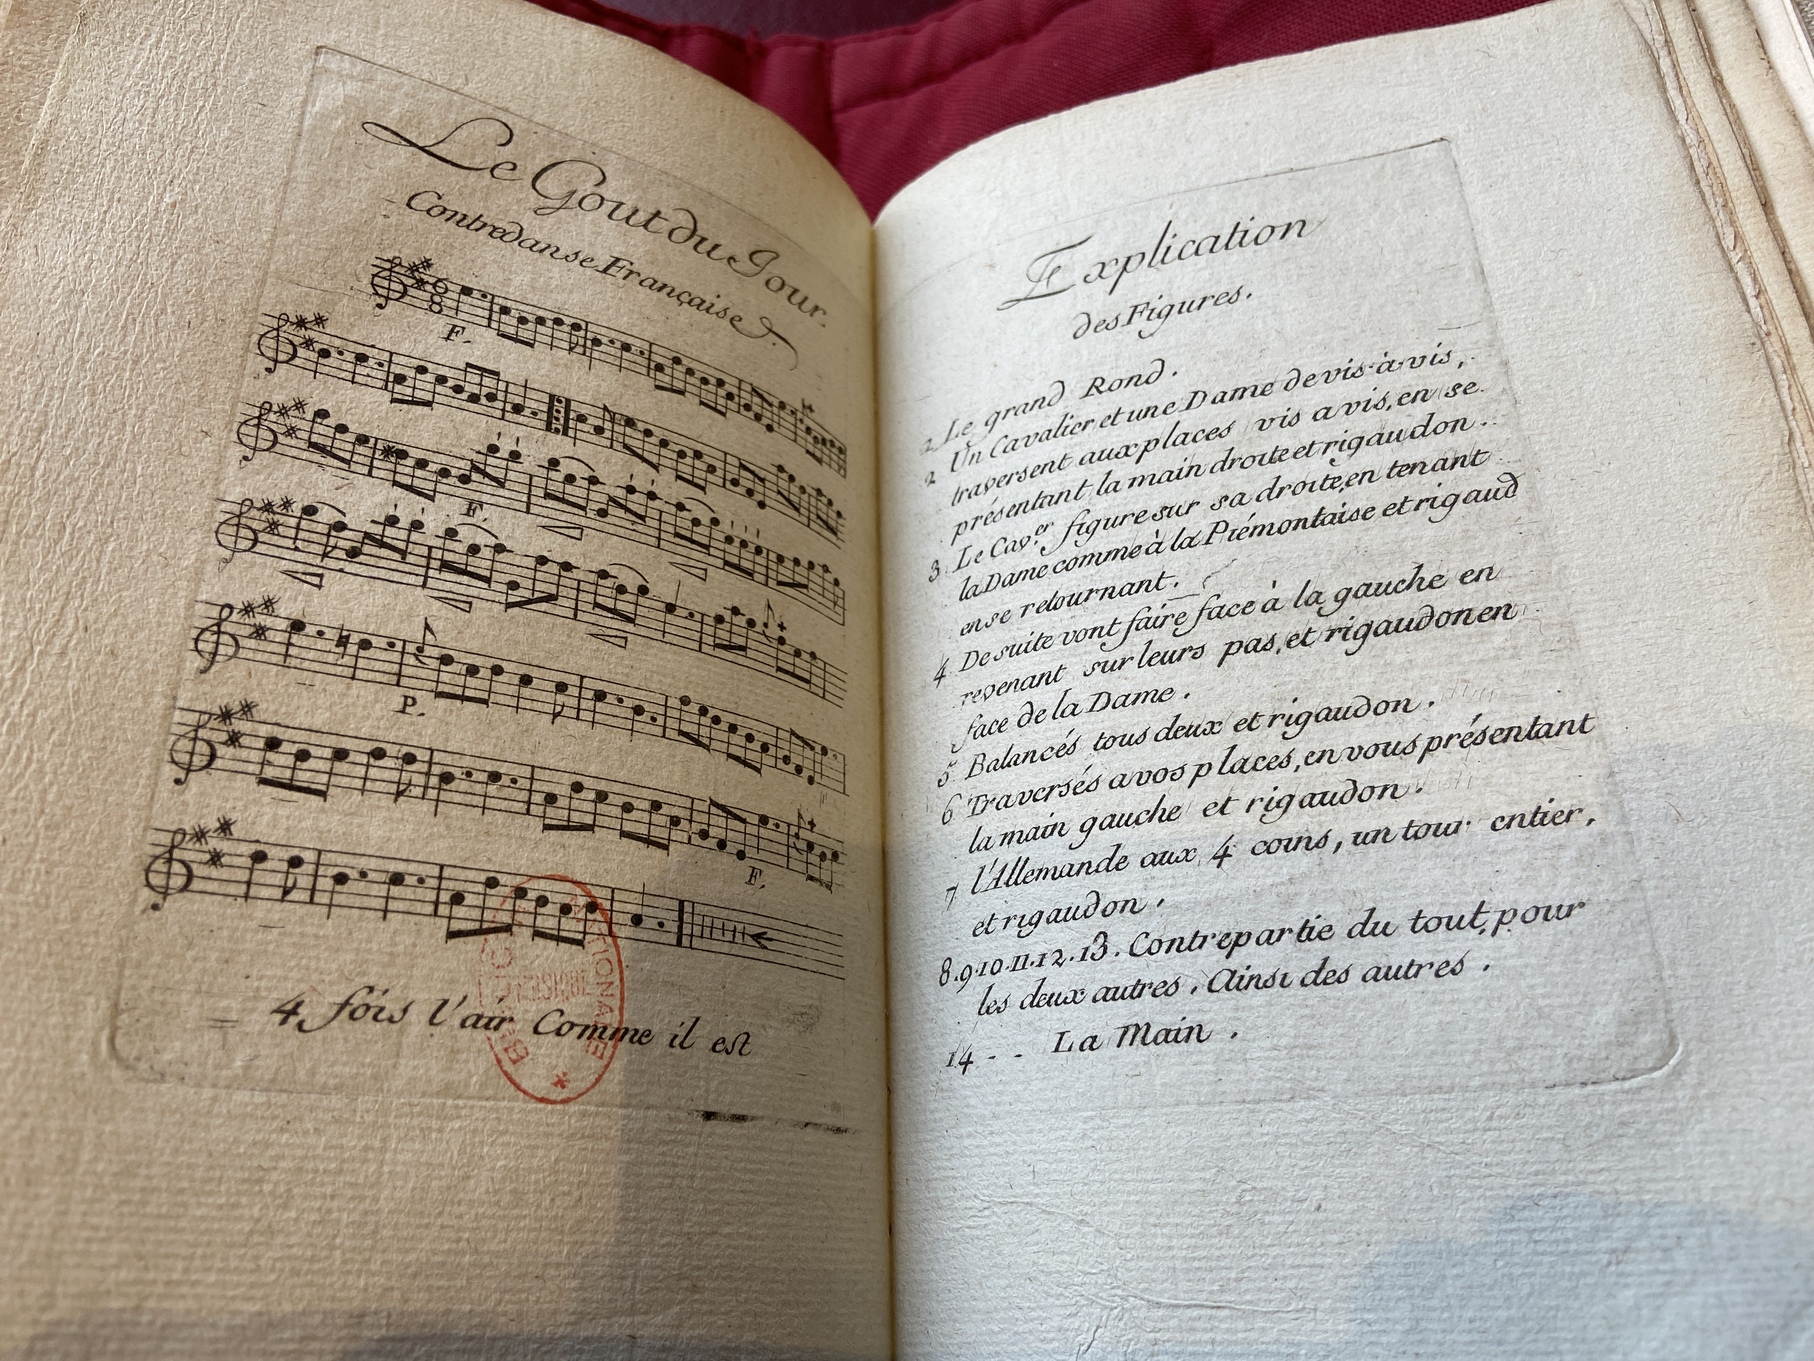 Le Gout du Jour.
Contredanse Française
F.
F.
P.
F.
4 fois l'air Comme il est
Explication
des Figures.
1 Le grand Rond.
2 Un Cavalier et une Dame de vis-à-vis,
traversent aux places vis a vis, en se
présentant la main droite et rigaudon.
3 Le Cav.er figure sur sa droite, en tenant
la Dame comme à la Piémontaise et rigaud
en se retournant.
4 De suite vont faire face à la gauche en
revenant sur leurs pas, et rigaudon en
face de la Dame.
5 Balancés tous deux et rigaudon.
6 Traversés a vos places, en vous présentant
la main gauche et rigaudon.
7 l'Allemande aux 4 coins, un tour entier,
et rigaudon.
8.9.10.11.12.13. Contrepartie du tout, pour
les deux autres. Ainsi des autres.
14 - - La Main.